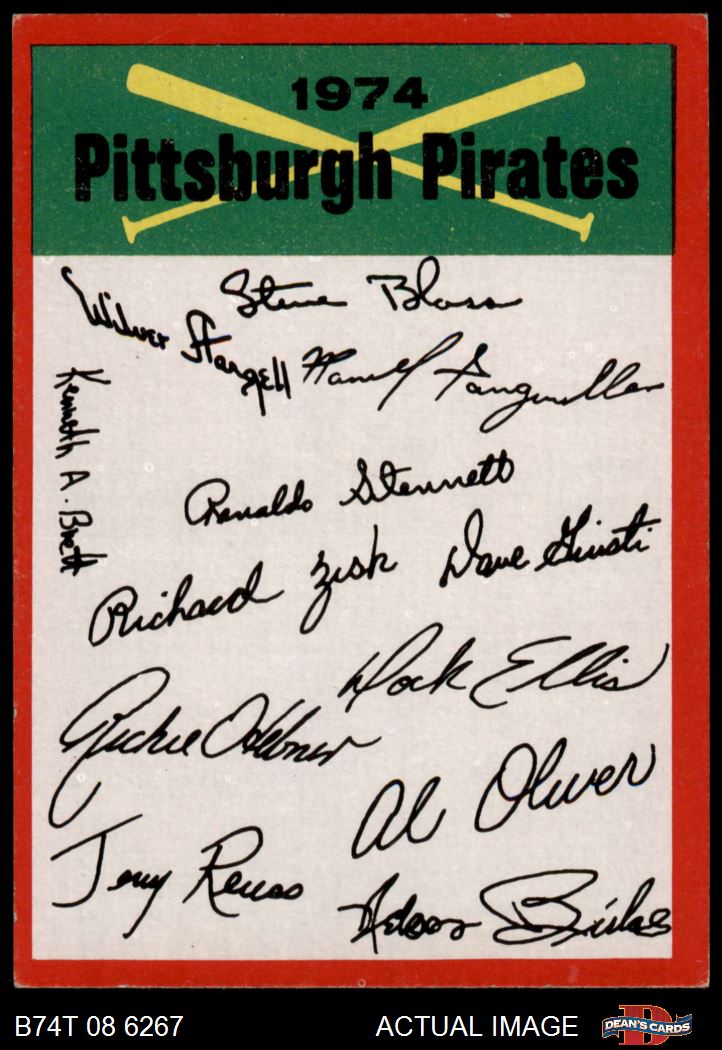 1974
Pittsburgh Pirates
Steve Blass
Wilver Stargell
Manuel Sanguillen
Kenneth A. Brett
Renaldo Stennett
Richard Zisk
Dave Giusti
Dock Ellis
Richie Hebner
Al Oliver
Jerry Reuss
Nelson Briles
B74T 08 6267
ACTUAL IMAGE
D
DEAN'S CARDS